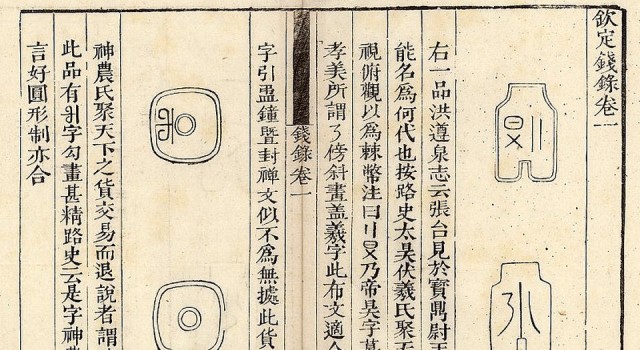 欽定錢錄卷一
右一品洪遵泉志云張台見於寶鼎尉王
能名爲何代也按路史太昊伏羲氏聚天
視俯觀以爲棘幣注曰乃帝昊字葛
孝美所謂傍斜畫蓋羲字此布文適合
字引盄鐘暨封禪文似不爲無據此貨
錢錄卷一
神農氏聚天下之貨交易而退說者謂
此品有字勾畫甚精路史云是字神農
言好圓形制亦合